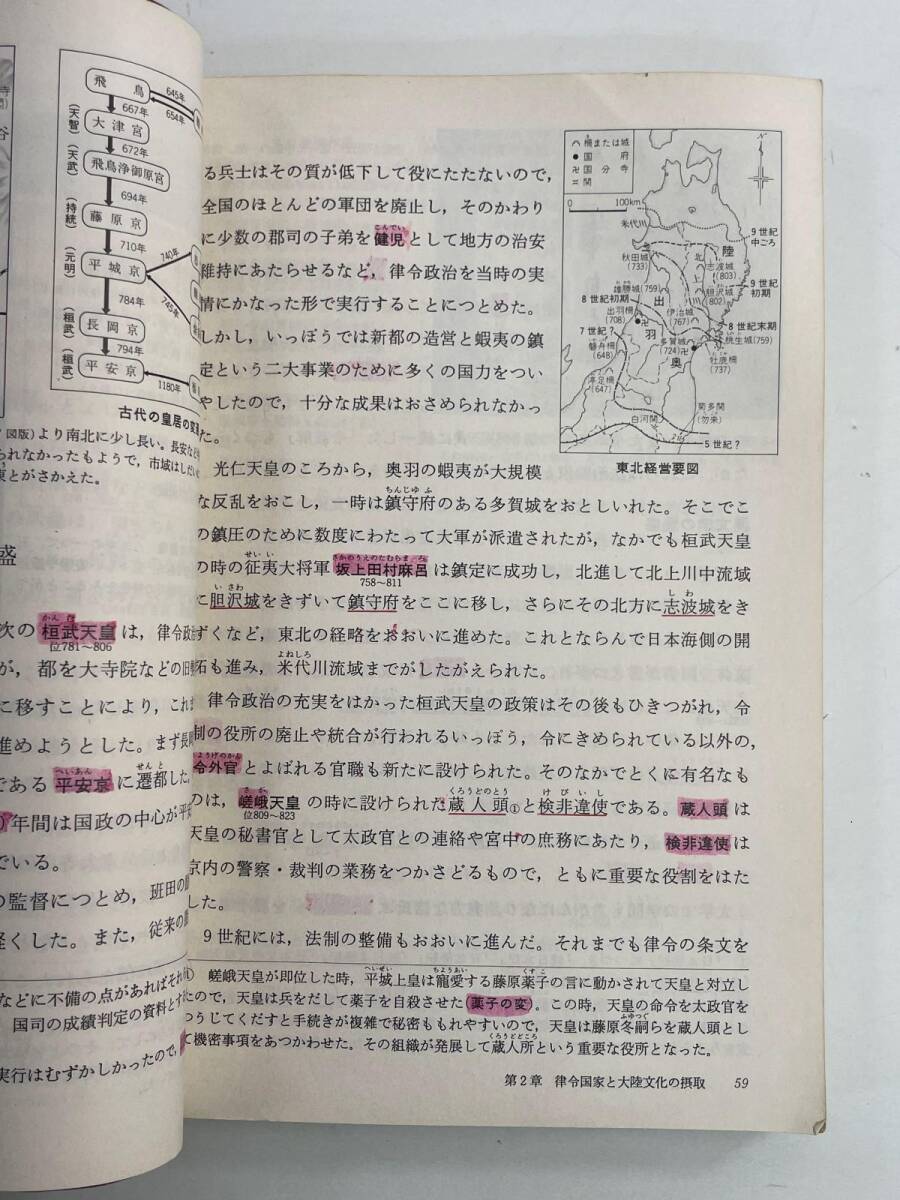 飛鳥
645年
654年
667年
(天智)
大津宮
672年
(天武)
飛鳥浄御原宮
694年
(持統)
藤原京
710年
(元明)
平城京
740年
745年
784年
(桓武)
長岡京
794年
(桓武)
平安京
1180年
古代の皇居の変
図版)より南北に少し長い。長安な
られなかったもようで，市域はしだい
東とがさかえた。
盛
次の桓武天皇は，律令政
かんむ
位781〜806
が，都を大寺院などの旧
に移すことにより，これま
進めようとした。まず長
である平安京に遷都した
へいあん
せんと
年間は国政の中心が平安
でいる。
の監督につとめ，班田の
軽くした。また，従来の
などに不備の点があればそれ
国司の成績判定の資料とす
実行はむずかしかったので，
る兵士はその質が低下して役にたたないので，
全国のほとんどの軍団を廃止し，そのかわり
こんでい
に少数の郡司の子弟を健児として地方の治安
維持にあたらせるなど，律令政治を当時の実
情にかなった形で実行することにつとめた。
しかし，いっぽうでは新都の造営と蝦夷の鎮
定という二大事業のために多くの国力をつい
やしたので，十分な成果はおさめられなかっ
た。
柵または城
国府
国分寺
関
N
0 100km
米代川
9世紀中ごろ
陸
秋田城(733)
北上川
志波城(803)
雄勝城(759)
胆沢城(802)
9世紀初期
8世紀初期
出
出羽柵(708)
伊治城(767)
8世紀末期
7世紀？
羽
桃生城(759)
磐舟柵(648)
多賀城(724)
奥
牡鹿柵(737)
渟足柵(647)
菊多関(勿来)
白河関
5世紀？
東北経営要図
光仁天皇のころから，奥羽の蝦夷が大規模
ちんじゅふ
な反乱をおこし，一時は鎮守府のある多賀城をおとしいれた。そこでこ
の鎮圧のために数度にわたって大軍が派遣されたが，なかでも桓武天皇
せいい
さかのうえのたむらまろ
の時の征夷大将軍坂上田村麻呂は鎮定に成功し，北進して北上川中流域
758〜811
いさわ
しわ
に胆沢城をきずいて鎮守府をここに移し，さらにその北方に志波城をき
ずくなど，東北の経略をおおいに進めた。これとならんで日本海側の開
よねしろ
拓も進み，米代川流域までがしたがえられた。
律令政治の充実をはかった桓武天皇の政策はその後もひきつがれ，令
制の役所の廃止や統合が行われるいっぽう，令にきめられている以外の，
りょうげのかん
令外官とよばれる官職も新たに設けられた。そのなかでとくに有名なも
さが
くろうどのとう
けびいし
のは，嵯峨天皇の時に設けられた蔵人頭①と検非違使である。蔵人頭は
位809〜823
天皇の秘書官として太政官との連絡や宮中の庶務にあたり，検非違使は
京内の警察・裁判の業務をつかさどるもので，ともに重要な役割をはた
した。
9世紀には，法制の整備もおおいに進んだ。それまでも律令の条文を
へいぜい
ちょうあい
くすこ
嵯峨天皇が即位した時，平城上皇は寵愛する藤原薬子の言に動かされて天皇と対立し
たので，天皇は兵をだして薬子を自殺させた(薬子の変)。この時，天皇の命令を太政官を
つうじてくだすと手続きが複雑で秘密ももれやすいので，天皇は藤原冬嗣らを蔵人頭とし
ふゆつぐ
て機密事項をあつかわせた。その組織が発展して蔵人所という重要な役所となった。
くろうどどころ
第2章 律令国家と大陸文化の摂取 59